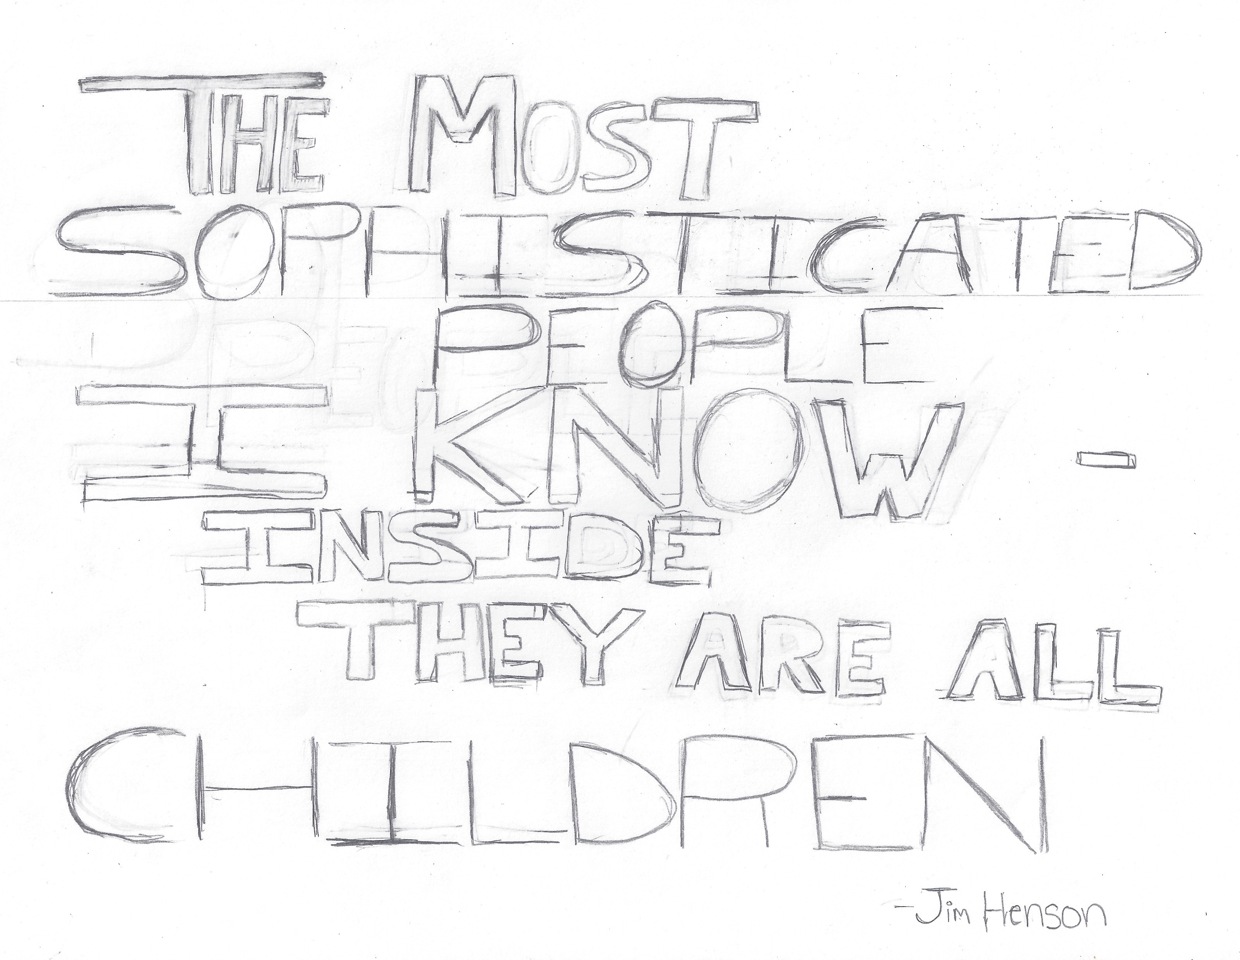 THE MOST
SOPHISTICATED
PEOPLE
I KNOW -
INSIDE
THEY ARE ALL
CHILDREN
-Jim Henson